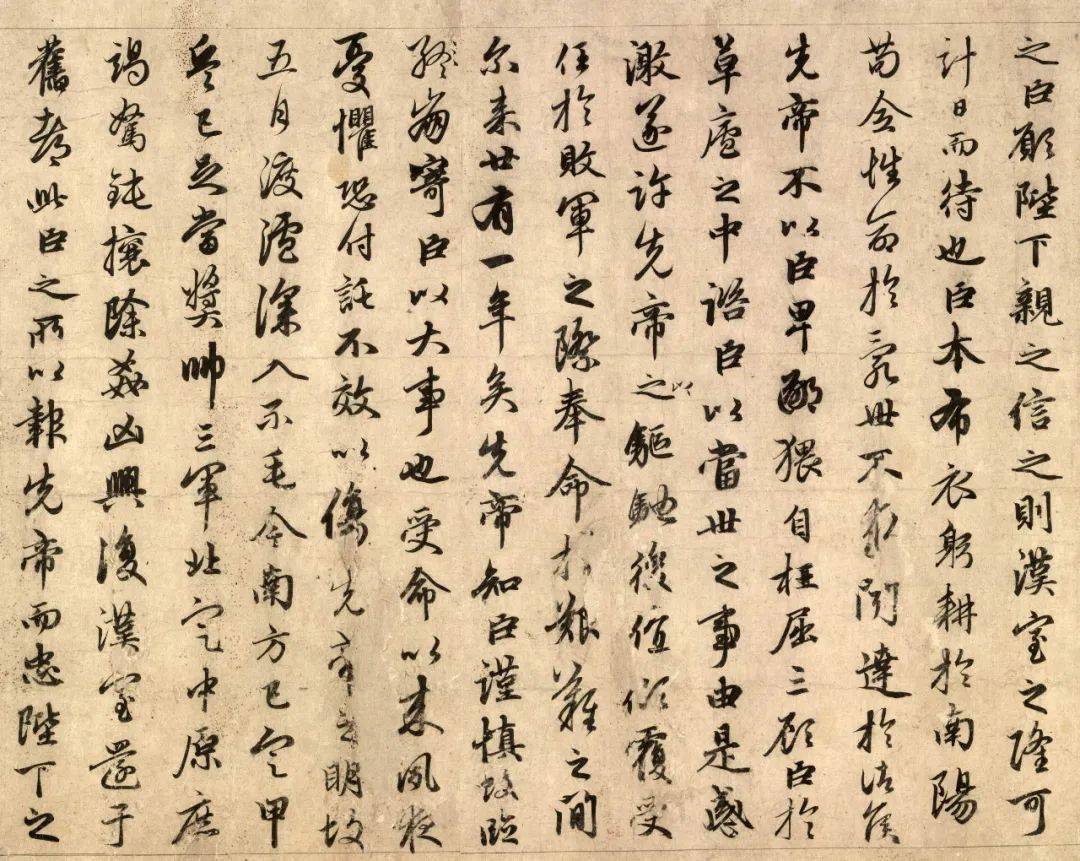 之臣願陛下親之信之則漢室之隆可
計日而待也臣本布衣躬耕於南陽
苟全性命於亂世不求聞達於諸侯
先帝不以臣卑鄙猥自枉屈三顧臣於
草廬之中諮臣以當世之事由是感
激遂許先帝之以驅馳後值傾覆受
任於敗軍之際奉命於艱難之間
尔来廿有一年矣先帝知臣謹慎故臨
終崩寄臣以大事也受命以来夙夜
憂懼恐付託不效以傷先帝之明故
五月渡瀘深入不毛今南方已定甲
兵已足當獎帥三軍北定中原庶
竭駑鈍攘除姦凶興復漢室還于
舊都此臣之所以報先帝而忠陛下之